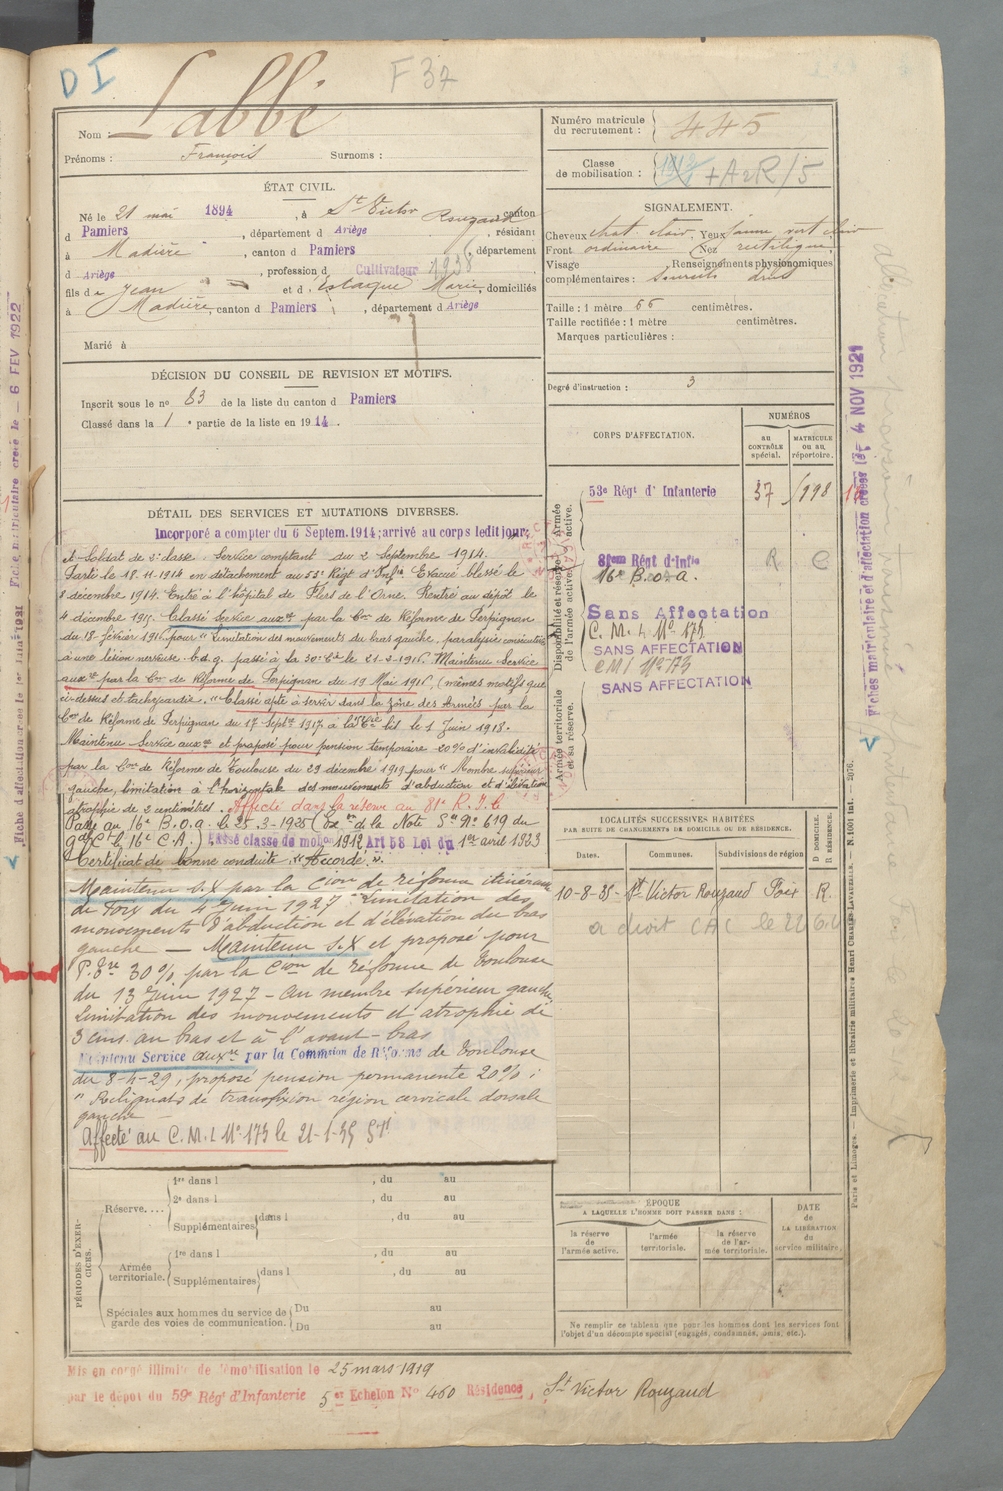 D I
F 37
Nom : Labbé
Prénoms : François Surnoms :
ÉTAT CIVIL.
Né le 21 mai 1894, à St Victor Rouzaud canton
d Pamiers, département d Ariège, résidant
à Madière, canton d Pamiers, département
d Ariège, profession d Cultivateur 1938
fils de Jean et d' Estaque Marie, domiciliés
à Madière, canton d Pamiers, département d Ariège
Marié à
DÉCISION DU CONSEIL DE REVISION ET MOTIFS.
Inscrit sous le no 83 de la liste du canton d Pamiers
Classé dans la 1 e partie de la liste en 1914.
DÉTAIL DES SERVICES ET MUTATIONS DIVERSES.
Incorporé a compter du 6 Septem. 1914; arrivé au corps ledit jour;
et Soldat de 2e classe. Service comptant du 2 Septembre 1914.
Parti le 18.11.1914 en détachement au 53e Régt d'Infie Evacué blessé le
8 décembre 1914. Entré à l'hôpital de Flers de l'Orne. Rentré au dépôt le
4 décembre 1915. Classé Service auxre par la Con de Réforme de Perpignan
du 18 février 1916 pour "Limitation des mouvements du bras gauche, paralysie consécutive
à une lésion nerveuse. b.d.g. passé à la 30e Cie le 21-2-1916. Maintenu Service
auxre par la Con de Réforme de Perpignan du 19 Mai 1916, (mêmes motifs que
ci-dessus et tachycardie." Classé apte à servir dans la zône des Armées par la
Con de Réforme de Perpignan du 17 Septre 1917 à la Cie bis le 1 Juin 1918.
Maintenu Service auxre et proposé pour pension temporaire 20% d'invalidité
par la Con de Réforme de Toulouse du 29 décembre 1919 pour "Membre supérieur
gauche, limitation à l'horizontale des mouvements d'abduction et d'élévation
atrophie de 2 centimètres. Affecté dans la réserve au 81e R.I. le
Passé au 16e B.O.a. le 25-3-1925 (Ex on de la Note Sce No 619 du
gal Ct le 16e C.A.). Passé classe de mob on 1912 Art 58 Loi du 1er avril 1923
Certificat de bonne conduite "Accordé".
Maintenu S.X par la Cion de réforme itinérante
de Foix du 4 Juin 1927 - Limitation des
mouvements d'abduction et d'élévation du bras
gauche — Maintenu S.X et proposé pour
P.Tre 30% par la Cion de réforme de Toulouse
du 13 Juin 1927 - au membre supérieur gauche,
Limitation des mouvements et atrophie de
3 cms. au bras et à l'avant-bras
Maintenu Service auxre par la Commission de Réforme de Toulouse
du 8-4-29, proposé pension permanente 20% :
"Reliquats de transfixion région cervicale dorsale
gauche —
Affecté au C.M.I No 173 le 21-1-35
PÉRIODES D'EXERCICES.
Réserve.... 1re dans l , du au
2e dans l , du au
Supplémentaires dans l , du au
Armée territoriale. 1re dans l , du au
Supplémentaires dans l , du au
Spéciales aux hommes du service de Du au
garde des voies de communication. Du au
Mis en congé illimité de démobilisation le 25 mars 1919
par le dépôt du 59e Régt d'Infanterie 5me Echelon No 460 Résidence, St Victor Rouzaud
Numéro matricule
du recrutement : 445
Classe
de mobilisation : 1912 + A2R/5
SIGNALEMENT.
Cheveux chat clair, Yeux jaune vert clair
Front ordinaire Nez rectiligne
Visage Renseignements physionomiques
complémentaires : Sourcils drus
Taille : 1 mètre 66 centimètres.
Taille rectifiée : 1 mètre centimètres.
Marques particulières :
Degré d'instruction : 3
CORPS D'AFFECTATION.
NUMÉROS
AU CONTRÔLE spécial.
MATRICULE ou au répertoire.
Armée active.
53e Régt d' Infanterie 37 1998
Disponibilité et réserve de l'armée active.
81eme Régt d'Infie R
16e B.O.a.
Sans Affectation
C.M.I No 173
SANS AFFECTATION
CMI No 173
SANS AFFECTATION
Armée territoriale et sa réserve.
LOCALITÉS SUCCESSIVES HABITÉES
PAR SUITE DE CHANGEMENTS DE DOMICILE OU DE RÉSIDENCE.
D DOMICILE.
R RÉSIDENCE.
Dates. Communes. Subdivisions de région
10-8-35- St Victor Rouzaud Foix R.
a droit CAC le
ÉPOQUE
A LAQUELLE L'HOMME DOIT PASSER DANS :
la réserve de l'armée active.
l'armée territoriale.
la réserve de l'armée territoriale.
DATE
de
LA LIBÉRATION
du
service militaire.
Ne remplir ce tableau que pour les hommes dont les services font
l'objet d'un décompte spécial (engagés, condamnés, omis, etc.).
Fiches matriculaire et d'affectation créées le 4 NOV 1921
Paris et Limoges. — Imprimerie et librairie militaires Henri CHARLES-LAVAUZELLE. — N. 1001 Int. — 2076.
Fiche d'affectation créée le 1er Juin 1921 Fiche matriculaire créée le - 6 FEV 1922